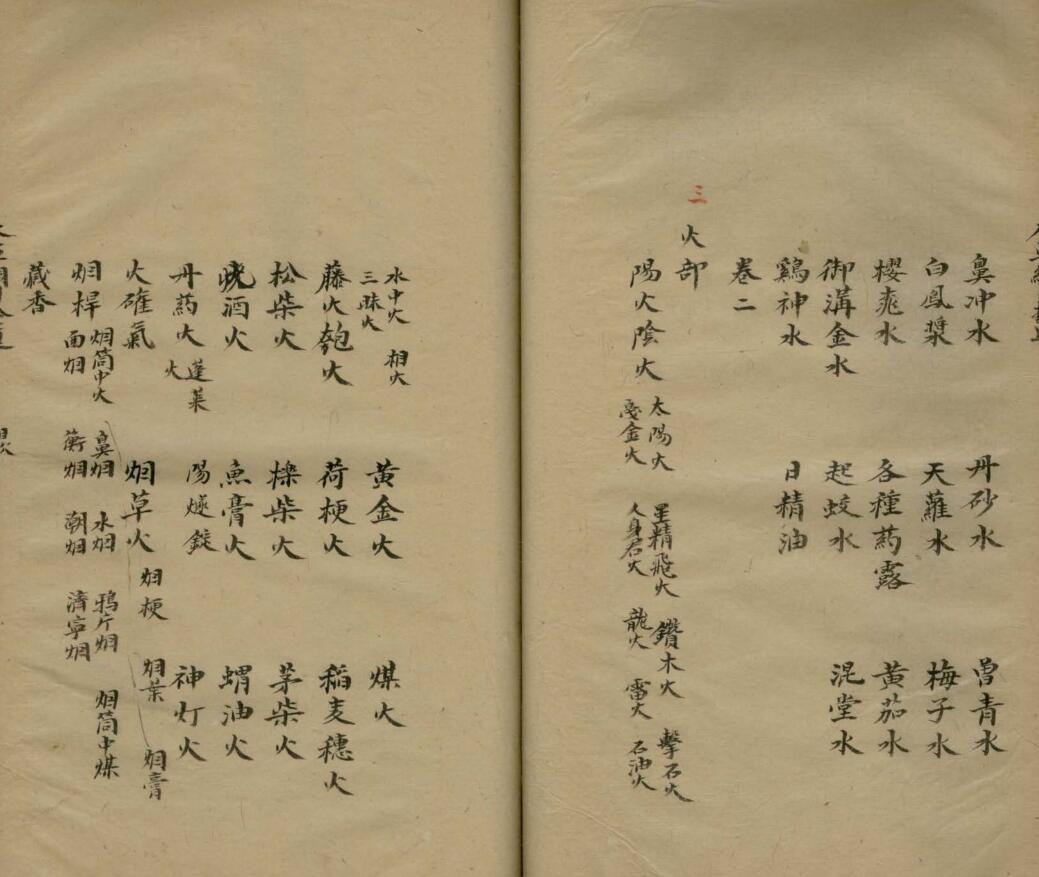 鼻冲水 丹砂水 曽青水
白鳳漿 天蘿水 梅子水
櫻桃水 各種药露 黄茄水
御溝金水 起蛟水 混堂水
鷄神水 日精油
卷二
三 火部
陽火陰火 太陽火 星精飛火 鑽木火 擊石火
戛金火 人身君火 龍火 雷火 石油火
水中火 相火
三昧火
黄金火 煤火
藤火匏火 荷梗火 稻麦穗火
松柴火 櫟柴火 茅柴火
燒酒火 魚膏火 蝟油火
丹药火 蓬莱火 陽燧錠 神灯火
火礶氣 烟草火 烟梗 烟葉 烟膏
烟桿 烟筒中火 鼻烟 水烟 鴉片烟 烟筒中煤
面烟 蘅烟 潮烟 濟寜烟
藏香